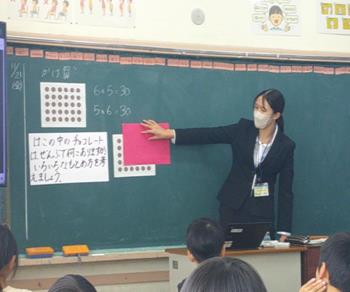 11/21
(金)
かけ算
6×5=30
5×6=30
はこの中のチョコレート
は、ぜんぶで何こありますか。
いろいろなもとめ方を考
えましょう。